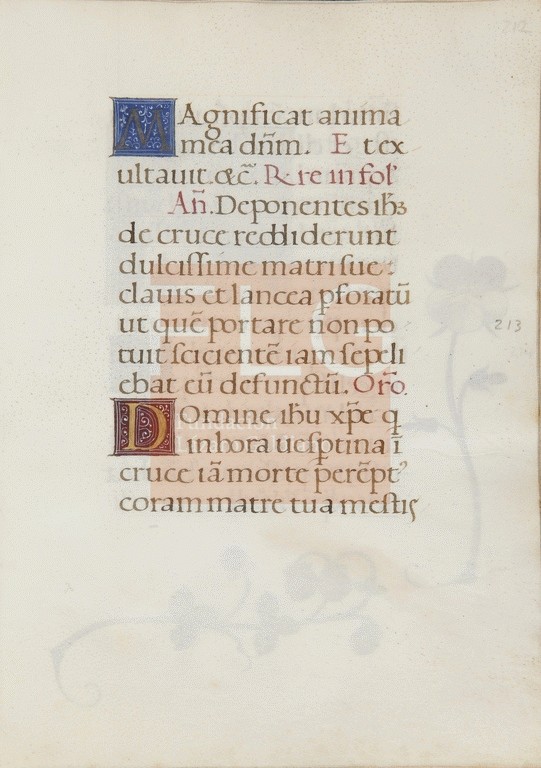 212
Magnificat anima
mea dn̄m. E t ex
ultauit. &c̄. R. re in fol'
An̄. Deponentes ihs
de cruce reddiderunt
dulcissime matri sue:
clauis et lancea pforatū
ut quē portare non po
tuit scicientē iam sepeli
ebat eū defunctū. Oro.
Domine ihu xp̄e q
in hora uesptina ī
cruce iā morte perēpt⁹
coram matre tua mestis
213
FLG
Fundación